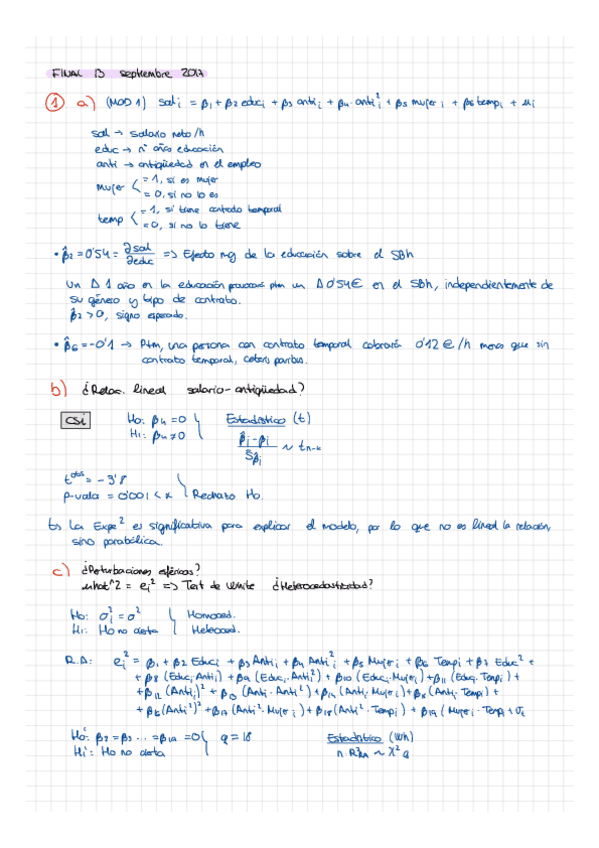 FINAL 13 septiembre 2017
① a) (MOD 1) sali = β1 + β2 educi + β3 antii + β4 antii² + β5 mujeri + β6 tempi + ui
sal → salario neto/h
educ → nº años educación
anti → antigüedad en el empleo
mujer < = 1, si es mujer
= 0, si no lo es
temp < = 1, si tiene contrato temporal
= 0, si no lo tiene
• β̂2 = 0'54 = ∂sal/∂educ => Efecto mg de la educación sobre el SBh
Un Δ 1 año en la educación provocará ptm un Δ 0'54€ en el SBh, independientemente de
su género y tipo de contrato.
β̂2 > 0, signo esperado.
• β̂6 = -0'1 → Ptm, una persona con contrato temporal cobrará 0'12€/h menos que sin
contrato temporal, ceteris paribus.
b) ¿Relac. lineal salario-antigüedad?
CSI H0: β4 = 0 Estadístico (t)
H1: β4 ≠ 0
β̂j - βj / Sβ̂j ~ tn-k
t obs = -3'8
p-valor = 0'001 < α Rechazo H0.
↳ La Expe² es significativa para explicar el modelo, por lo que no es lineal la relación,
sino parabólica.
c) ¿Perturbaciones esféricas?
uhat^2 = ei² => Test de White ¿Heterocedasticidad?
H0: σi² = σ² Homoced.
H1: H0 no cierta Heteroced.
R.A: ei² = β1 + β2 Educi + β3 Antii + β4 Antii² + β5 Mujeri + β6 Tempi + β7 Educ² +
+ β8 (Educi·Antii) + β9 (Educi·Antii²) + β10 (Educi·Mujeri) + β11 (Educi·Tempi) +
+ β12 (Antii)² + β13 (Antii·Antii²) + β14 (Antii·Mujeri) + β15 (Antii·Tempi) +
+ β16 (Antii²)² + β17 (Antii²·Mujeri) + β18 (Antii²·Tempi) + β19 (Mujeri·Tempi) + υt
H0: β2 = β3 ... = β19 = 0 q = 18 Estadístico (Wh)
H1: H0 no cierta n·R²RA ~ χ²q